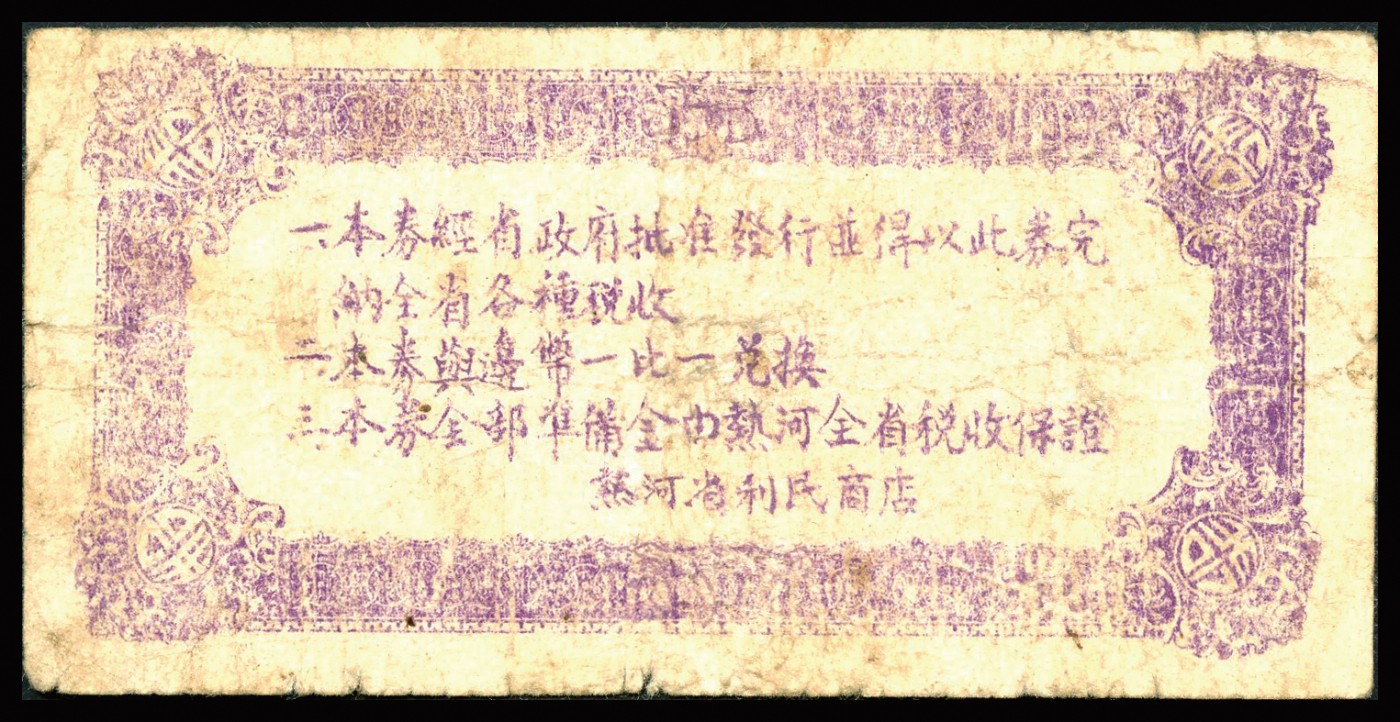 一、本券經省政府批准發行並得以此券完
納全省各種税收
二、本券與邊幣一比一兑換
三、本券全部準備金由熱河全省税收保證
熱河省利民商店